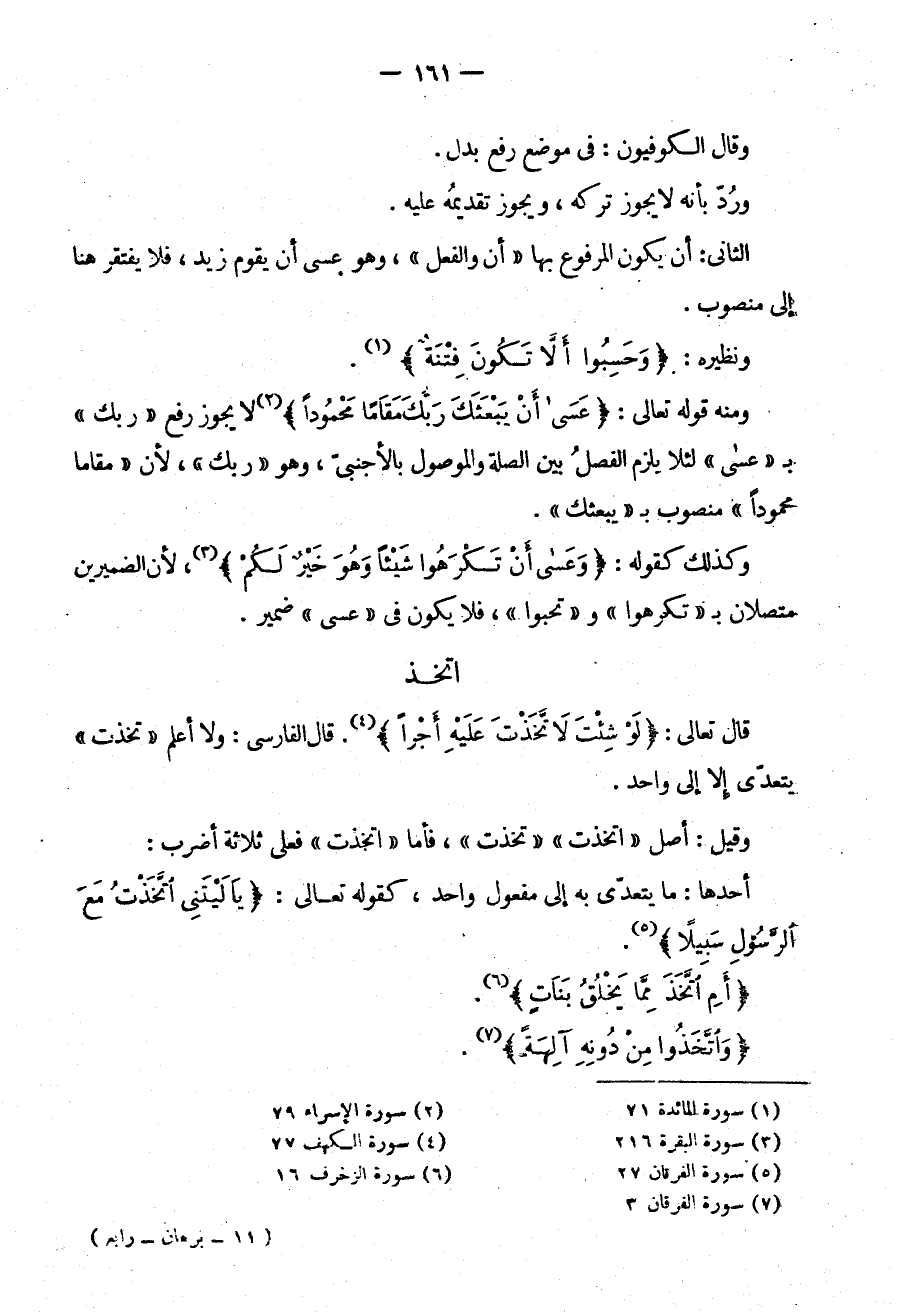 — ١٦١ —
وقال الكوفيون : فى موضع رفع بدل .
ورُدّ بأنه لا يجوز تركه ، ويجوز تقديمُه عليه .
الثانى: أن يكون المرفوع بها « أن والفعل » ، وهو عسى أن يقوم زيد ، فلا يفتقر هنا
إلى منصوب .
ونظيره : ﴿ وَحَسِبُوا أَلَّا تَكُونَ فِتْنَةٌ ﴾ (١) .
ومنه قوله تعالى : ﴿ عَسَىٰ أَنْ يَبْعَثَكَ رَبُّكَ مَقَامًا مَحْمُوداً ﴾(٢) لا يجوز رفع « ربك »
بـ « عسٰى » لئلا يلزم الفصلُ بين الصلة والموصول بالأجنبىّ ، وهو « ربك» ، لأن « مقاما
محموداً » منصوب بـ « يبعثك» .
وكذلك كقوله : ﴿ وَعَسٰى أَنْ تَكْرَهُوا شَيْئاً وَهُوَ خَيْرٌ لَكُمْ ﴾(٣) ، لأن الضميرين
متصلان بـ « تكرهوا » و « تحبوا » ، فلا يكون فى « عسى » ضمير .
اتخذ
قال تعالى : ﴿ لَوْ شِئْتَ لَاتَّخَذْتَ عَلَيْهِ أَجْراً ﴾(٤) . قال الفارسى : ولا أعلم « تخذت »
يتعدّى إلا إلى واحد .
وقيل : أصل « اتخذت » « تخذت » ، فأما « اتخذت » فعلى ثلاثة أضرب :
أحدها : ما يتعدّى به إلى مفعول واحد ، كقوله تعالى : ﴿ يَالَيْتَنِى ٱتَّخَذْتُ مَعَ
ٱلرَّسُوْلِ سَبِيلًا ﴾(٥) .
﴿ أَمِ ٱتَّخَذَ مِمَّا يَخْلُقُ بَنَاتٍ ﴾(٦) .
﴿ وَٱتَّخَذُوا مِنْ دُونِهِ آلِهَةً ﴾(٧) .
(١) سورة المائدة ٧١ (٢) سورة الإسراء ٧٩
(٣) سورة البقرة ٢١٦ (٤) سورة الكهف ٧٧
(٥) سورة الفرقان ٢٧ (٦) سورة الزخرف ١٦
(٧) سورة الفرقان ٣
( ١١ – برهان – رابع )